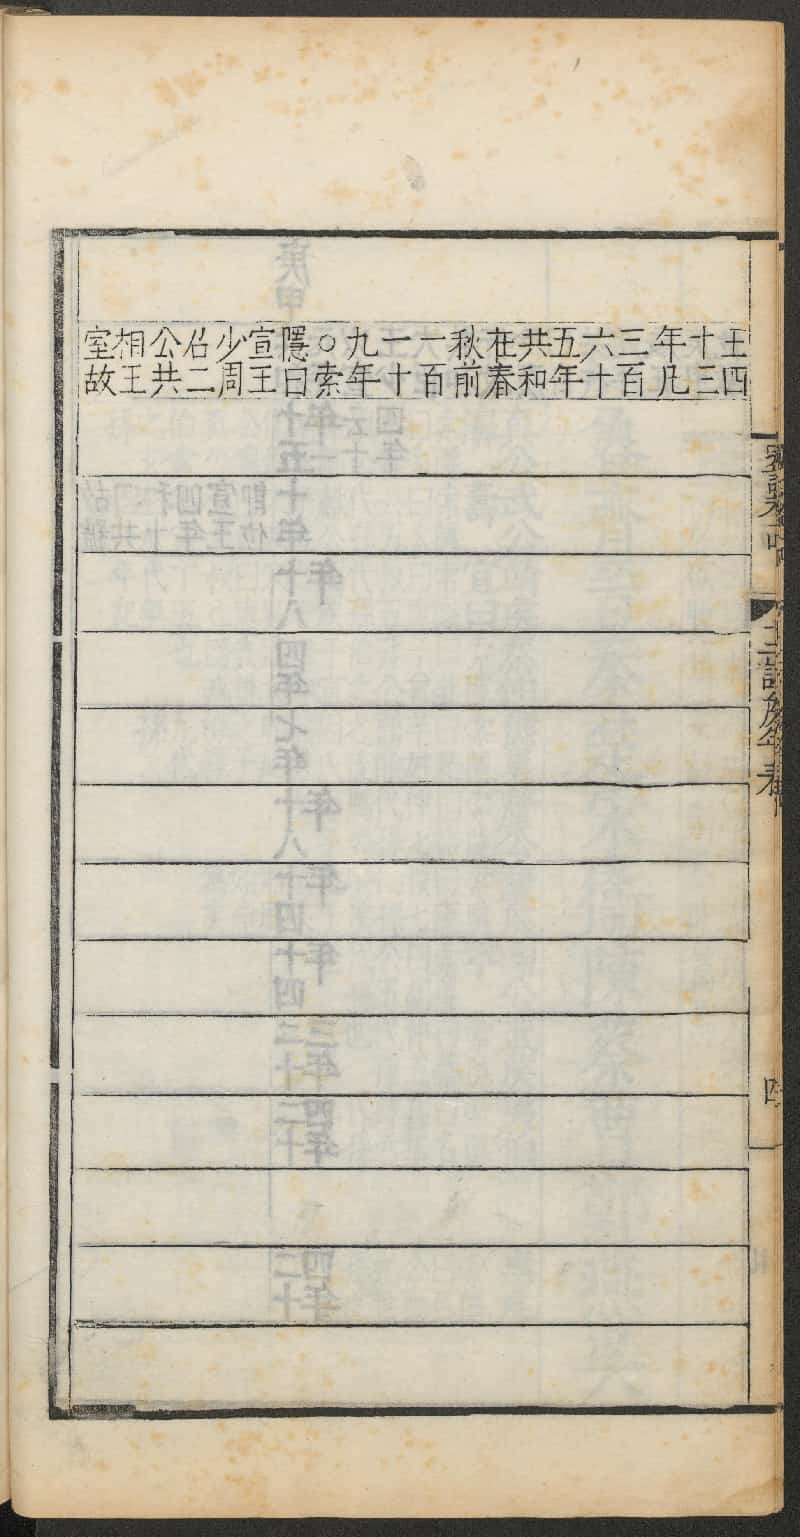 王四
十三
年凡
三百
六十
五年
共和
在春
秋前
一百
一十
九年
○索
隱曰
宣王
少周
召二
公共
相王
室故
十二諸侯年表
四